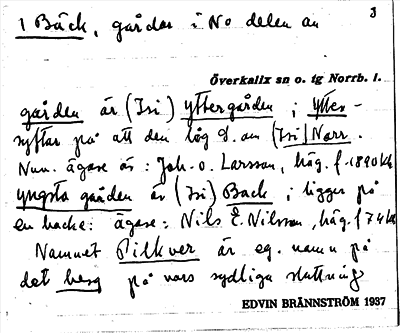 1 Bäck, gårdar i No delen av
3
Överkalix sn o. tg Norrb. l.
gården är (Isi) yttergården ; ytter-
syftar på att den låg S. om (Isi) Norr.
Nuv. ägare är : Joh. O. Larsson, häg. f. 1890
yngsta gården är (Isi) Back ; ligger på
en backe : ägare : Nils E. Nilsson, häg. f 74
Namnet Pilkver är eg. namn på
det berg på vars sydliga sluttning
EDVIN BRÄNNSTRÖM 1937